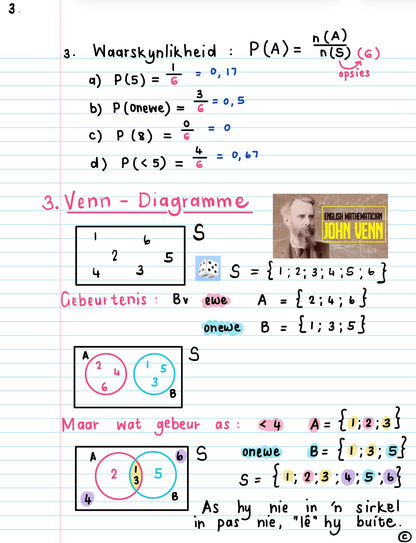 3.
3. Waarskynlikheid : P(A) = n(A)/n(S) (6)
opsies
a) P(5) = 1/6 = 0,17
b) P(onewe) = 3/6 = 0,5
c) P(8) = 0/6 = 0
d) P(<5) = 4/6 = 0,67
3. Venn - Diagramme
1 6 S
2 5
4 3
ENGLISH MATHEMATICIAN
JOHN VENN
S = {1;2;3;4;5;6}
Gebeurtenis : Bv ewe A = {2;4;6}
onewe B = {1;3;5}
A S
2 4 1 5
6 3
B
Maar wat gebeur as : <4 A = {1;2;3}
A 6 S
onewe B = {1;3;5}
2 1 5
3
4 B
S = {1;2;3;4;5;6}
As hy nie in 'n sirkel
in pas nie, "lê" hy buite.
©